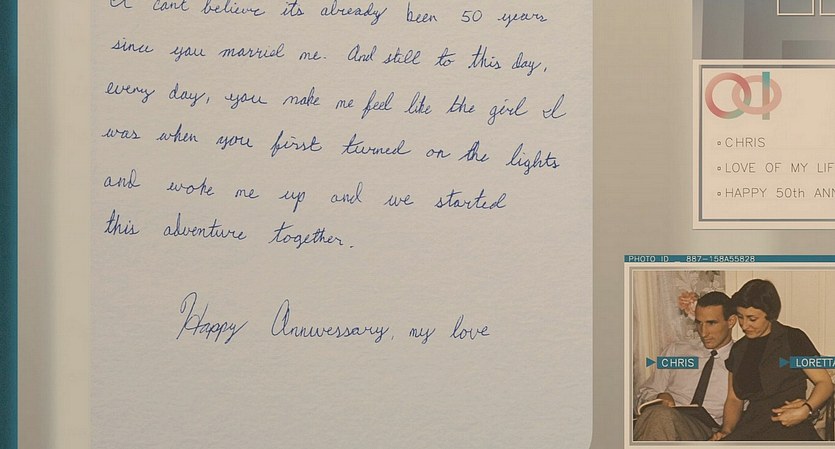 I cant believe its already been 50 years
since you married me. And still to this day,
every day, you make me feel like the girl I
was when you first turned on the lights
and woke me up and we started
this adventure together.
Happy Anniversary, my love
CHRIS
LOVE OF MY LIF
HAPPY 50th ANN
PHOTO ID _ 887-158A55828
CHRIS
LORETTA